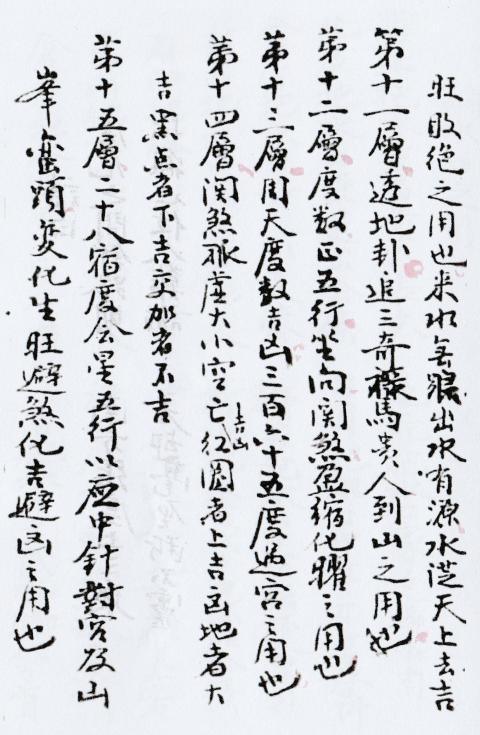 旺敗絶之用也来水無踪出水有源水從天上去吉
第十一層透地卦追三奇祿馬貴人到山之用也
第十二層度数正五行坐向関煞盈縮化曜之用也
第十三層周天度数吉凶三百六十五度过宮之用也
第十四層関煞孤虚大小空亡吉凶红圈者上吉凶地者大
吉黑点者下吉交加者不吉
第十五層二十八宿度会星五行以应中針對宮及山
峯巒頭变化生旺避煞化吉避凶之用也